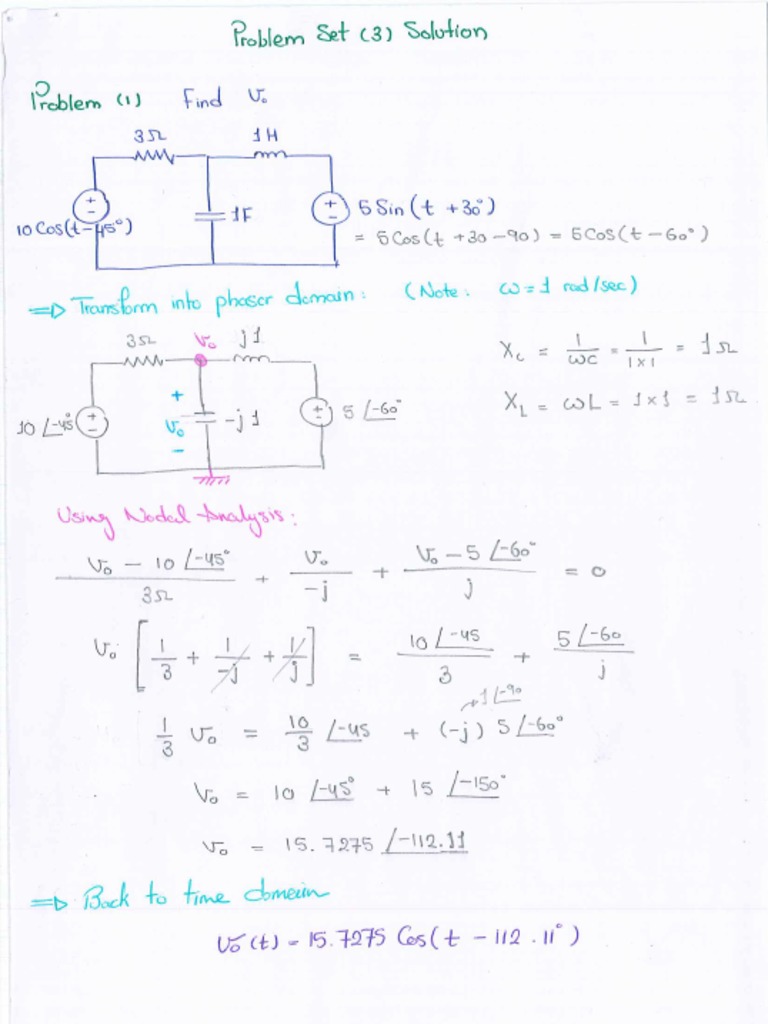 Problem Set (3) Solution
Problem (1) Find V₀
3Ω 1H
10 Cos(t-45°) + - 1F + - 5 Sin (t + 30°)
= 5 Cos(t + 30 - 90) = 5 Cos(t - 60°)
⇒ Transform into phasor domain: (Note: ω = 1 rad/sec)
3Ω V₀ j1
X_c = 1/ωC = 1/1×1 = 1Ω
10 ∠-45° + - + V₀ - -j1 + - 5 ∠-60°
X_L = ωL = 1×1 = 1Ω
Using Nodal Analysis:
(V₀ - 10 ∠-45°)/3Ω + V₀/-j + (V₀ - 5 ∠-60°)/j = 0
V₀ [1/3 + 1/-j + 1/j] = 10 ∠-45/3 + 5 ∠-60/j
→ 1 ∠-90
1/3 V₀ = 10/3 ∠-45 + (-j) 5 ∠-60°
V₀ = 10 ∠-45° + 15 ∠-150°
V₀ = 15.7275 ∠-112.11
⇒ Back to time domain
V₀(t) = 15.7275 Cos(t - 112.11°)